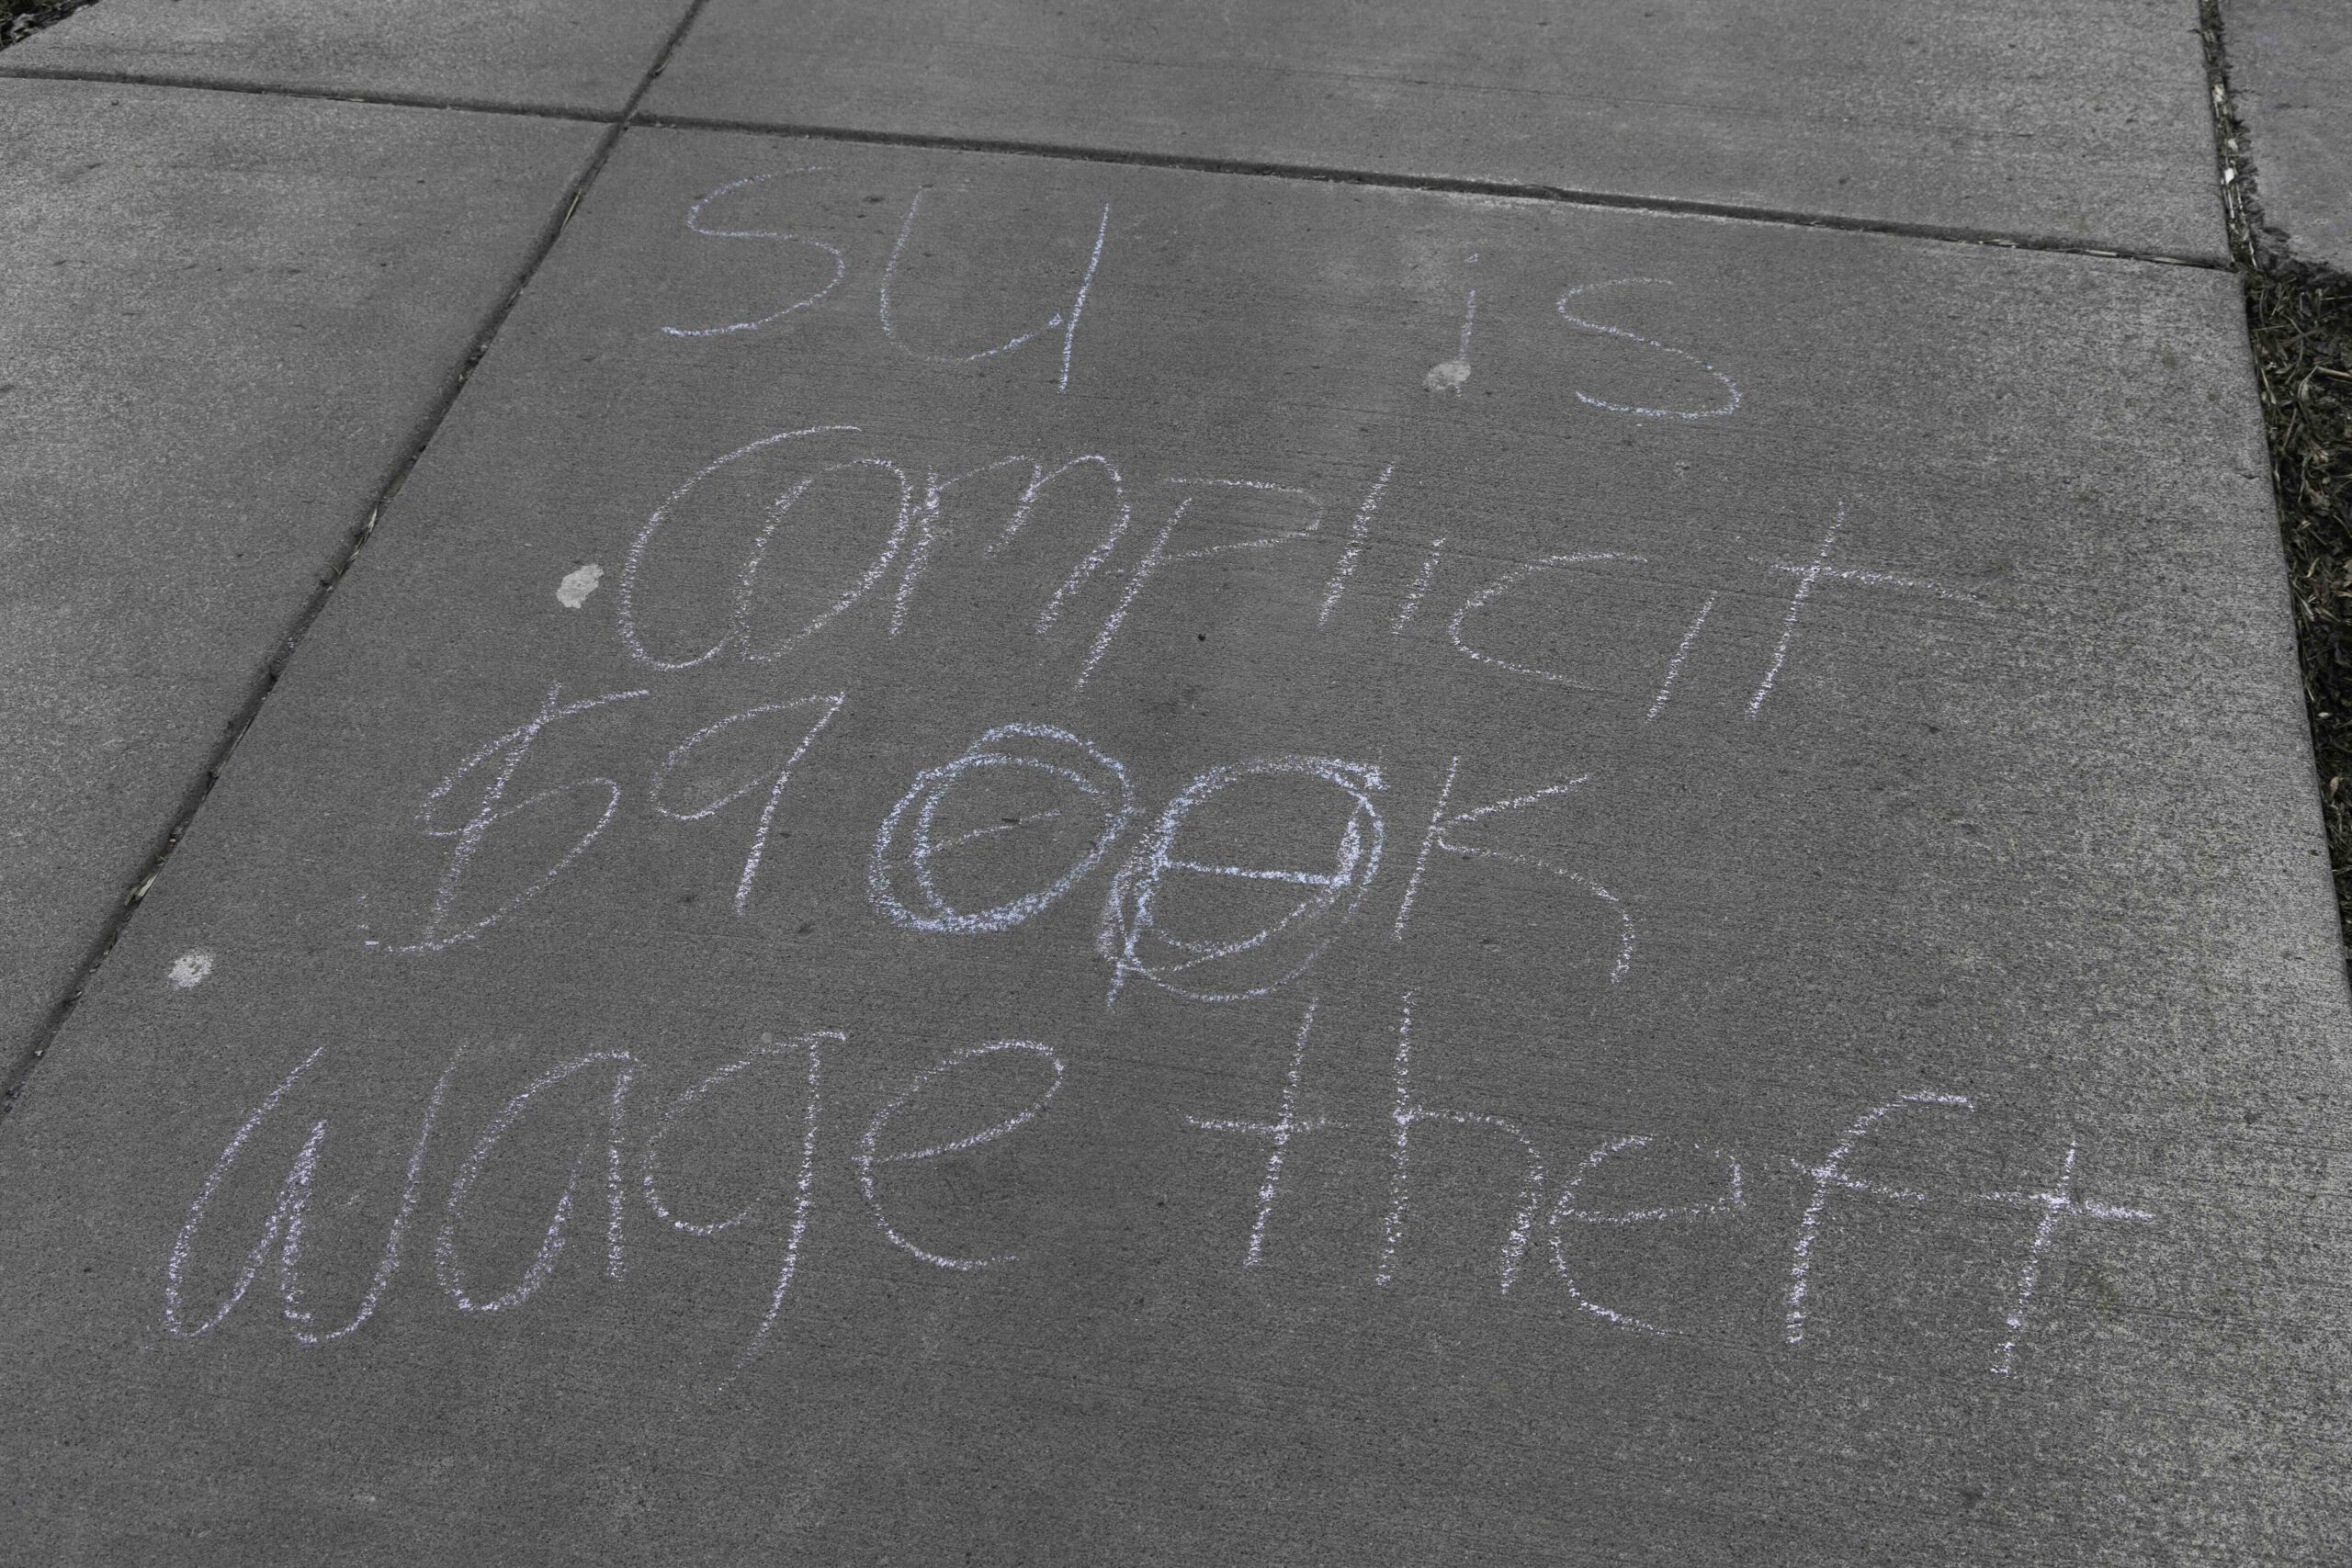 SU is
complicit
$900K
wage theft